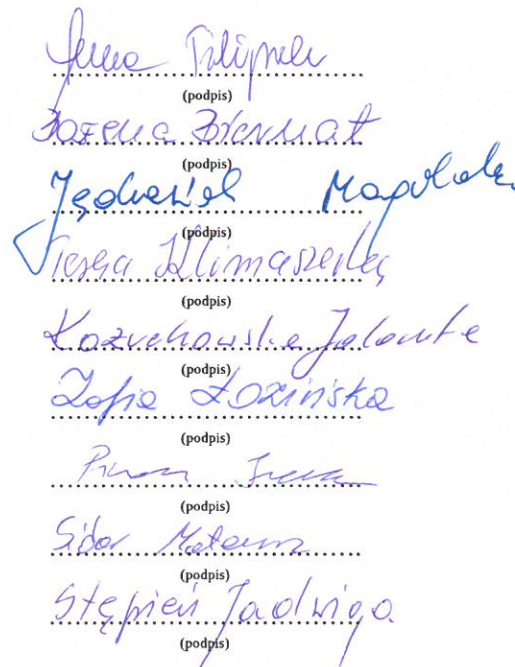 Anna Filipek
(podpis)
Bożena Biernat
(podpis)
Jędrasiek Magdalena
(podpis)
Teresa Klimaszewska
(podpis)
Kożuchowska Jolanta
(podpis)
Zofia Łozińska
(podpis)
(podpis)
Sidor Mateusz
(podpis)
Stępień Jadwiga
(podpis)